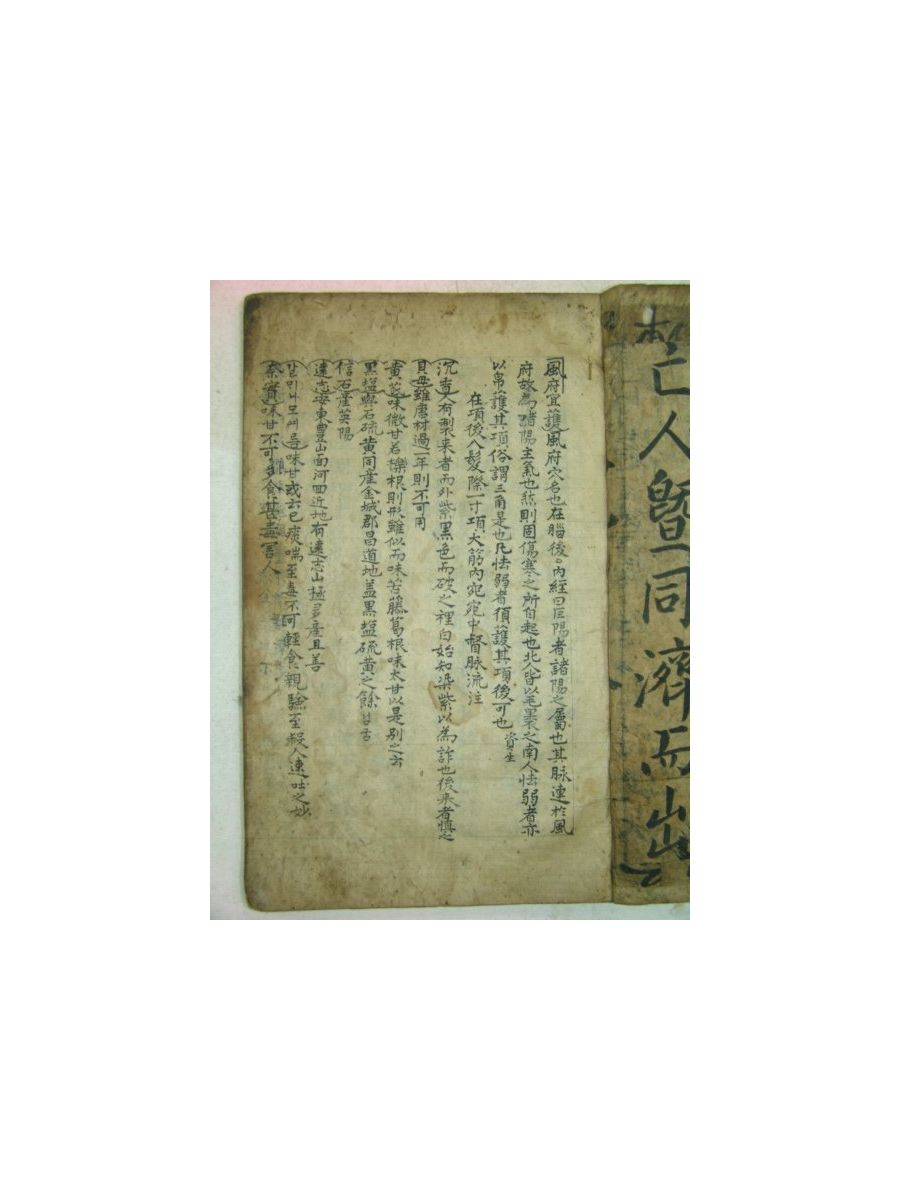 亡人曁同濟而出
風府宜護風府穴名也在腦後。內經曰巨陽者諸陽之屬也其脉連於風
府故為諸陽主氣也然則固傷寒之所自起也北人皆以毛裹之南人怯弱者亦
以帛護其項俗謂三角是也凡怯弱者須護其項後可也 資生
在項後入髮際一寸項大筋內宛宛中督脉流注
沉香人有製来者而外紫黑色而破之裡白始知染紫以為詐也後来者慎之
貝母雖唐材過一年則不可用
黃芪味微甘若櫟根則形雖似而味苦藤葛根味太甘以是別之云
黑塩與石硫黃同産金城郡昌道地盖黑塩硫黃之餘
信石産英陽
遠志安東豊山面河回近地有遠志山極多産且善
나모 여름味甘或云已痰喘至毒不可輕食親驗至殺人速吐之妙
柰實味甘不可多食甚毒害人